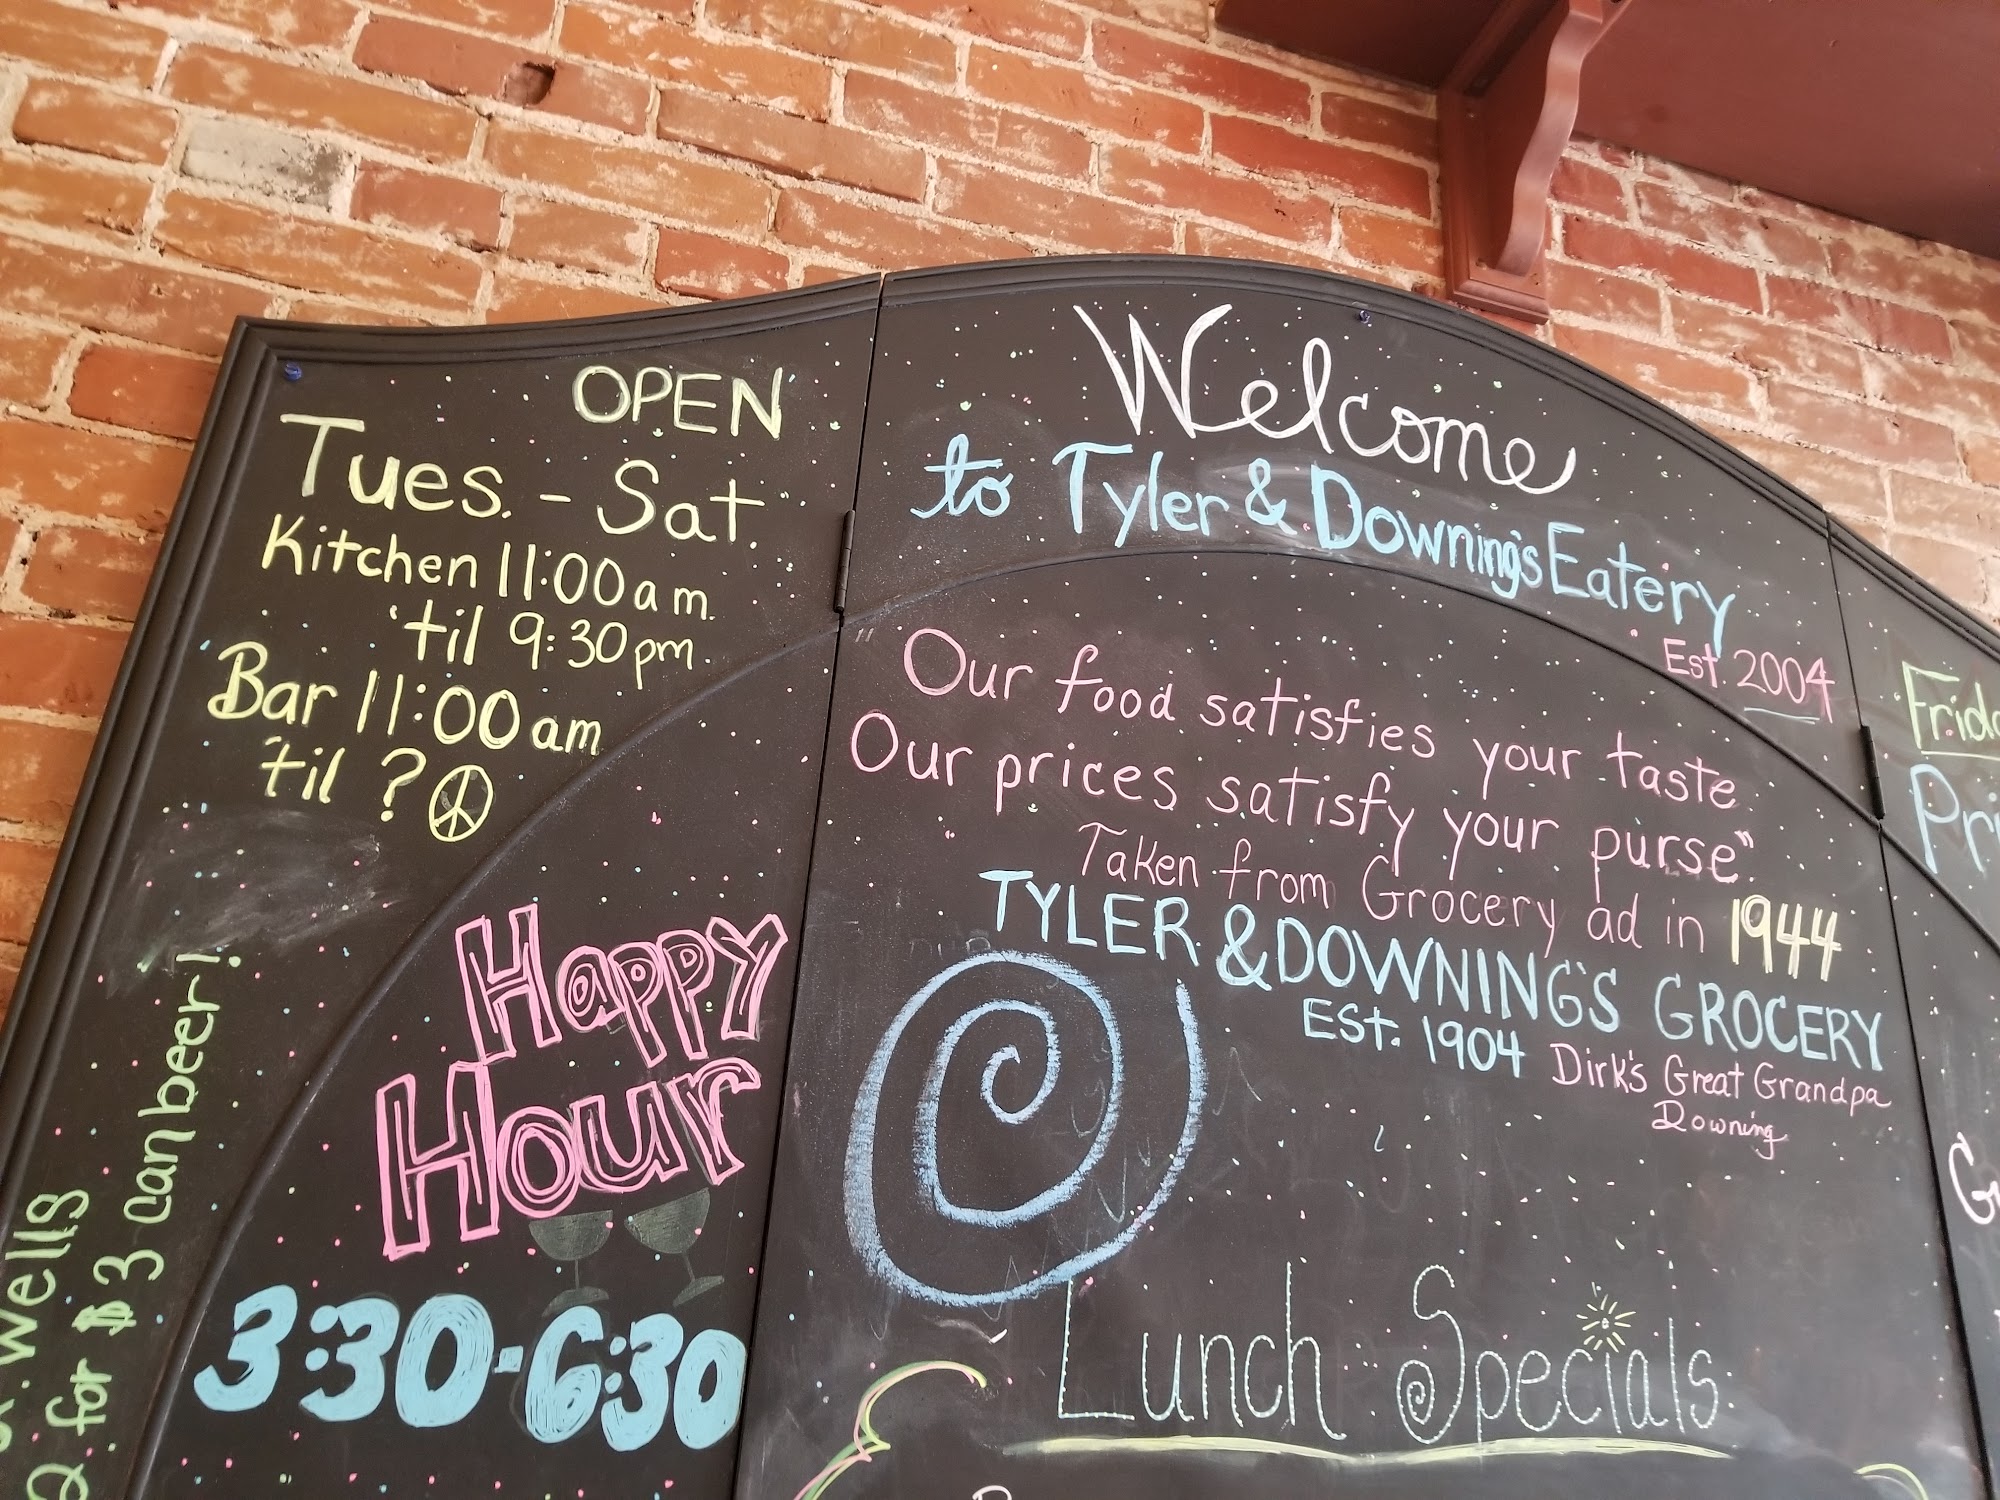 OPEN
Tues. - Sat.
Kitchen 11:00am
'til 9:30pm.
Bar 11:00am
'til ?
Happy
Hour
3:30-6:30
Wells
for $3 can beer!
Welcome
to Tyler & Downing's Eatery
Est. 2004
"Our food satisfies your taste
Our prices satisfy your purse".
Taken from Grocery ad in 1944
TYLER & DOWNING'S GROCERY
EST. 1904 Dirk's Great Grandpa
Downing
Lunch Specials